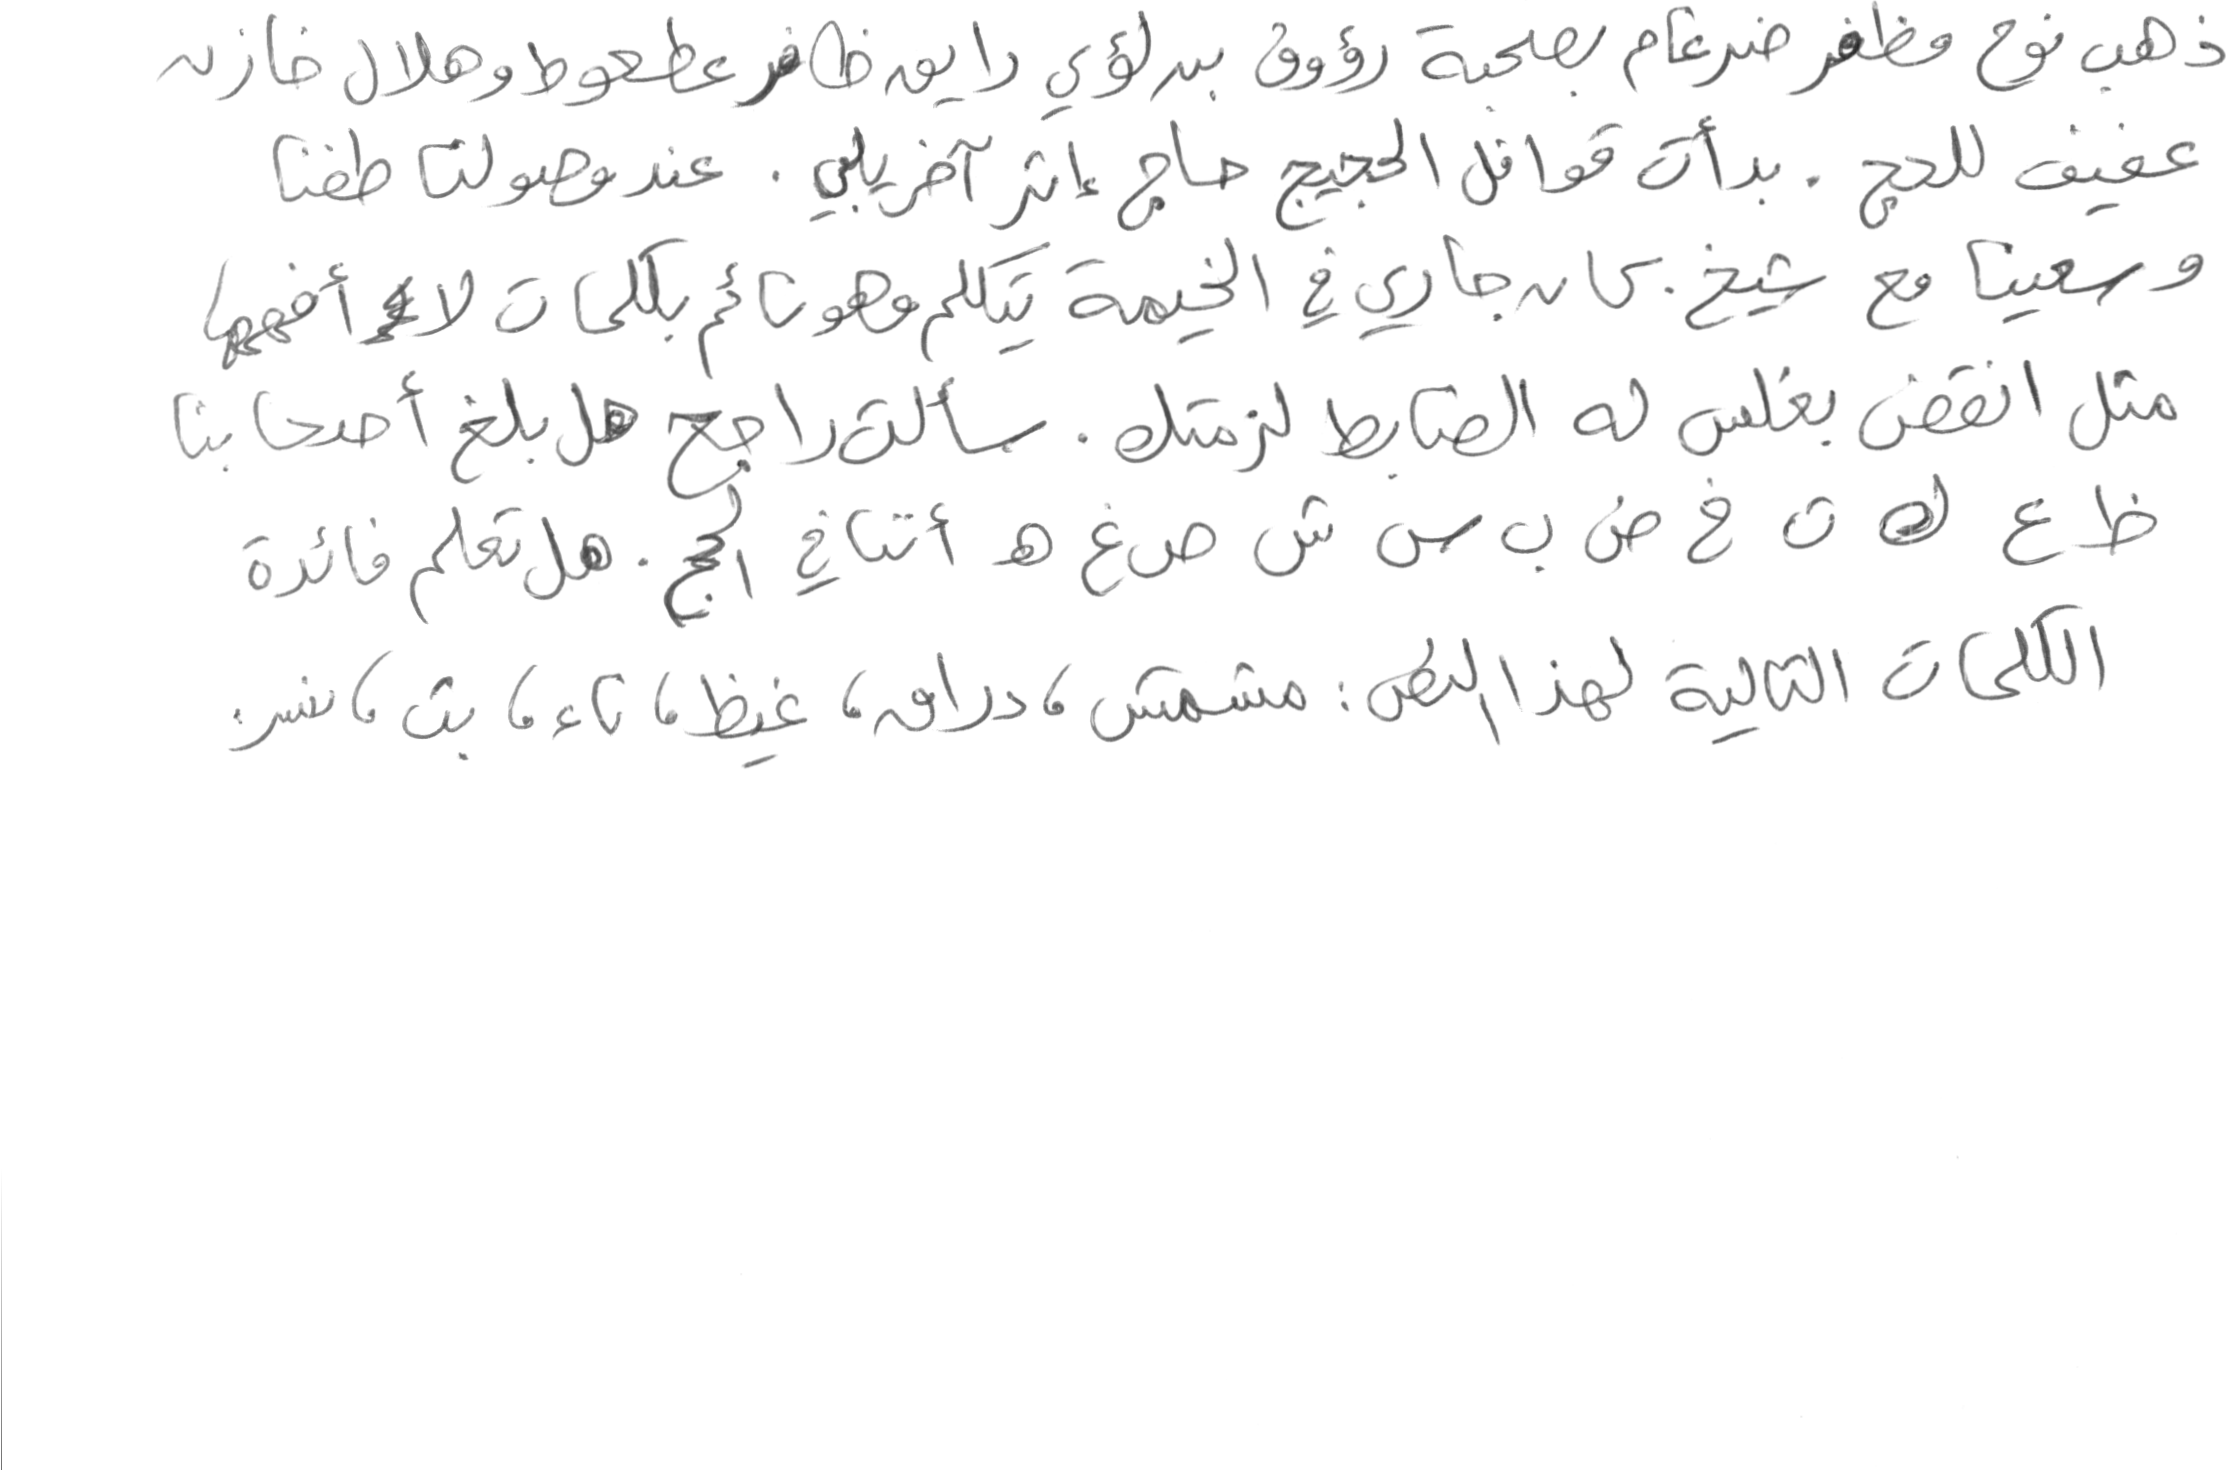 ذهب نوح مظفر ضرغام بصحبة رؤوف بدر لؤي رايق ظافر عطعوط وهلال خازن
عفيف للحج . بدأت قوافل الحجيج حاج إثر آخر يلبي . عند وصولنا طفنا
وسعينا مع شيخ . كان جاري في الخيمة يتكلم وهو نائم بكلمات لا أفهمها
مثل انقض بغلس له الضابط لزمتك . سألت راجح هل بلغ أصحابنا
ظ ع ك ت خ ض ب س ش ص غ ه أثنا في الحج . هل تعلم فائدة
الكلمات التالية لهذا النص : مشمش ، دراق ، غيظ ، ناء ، بث ، نسر